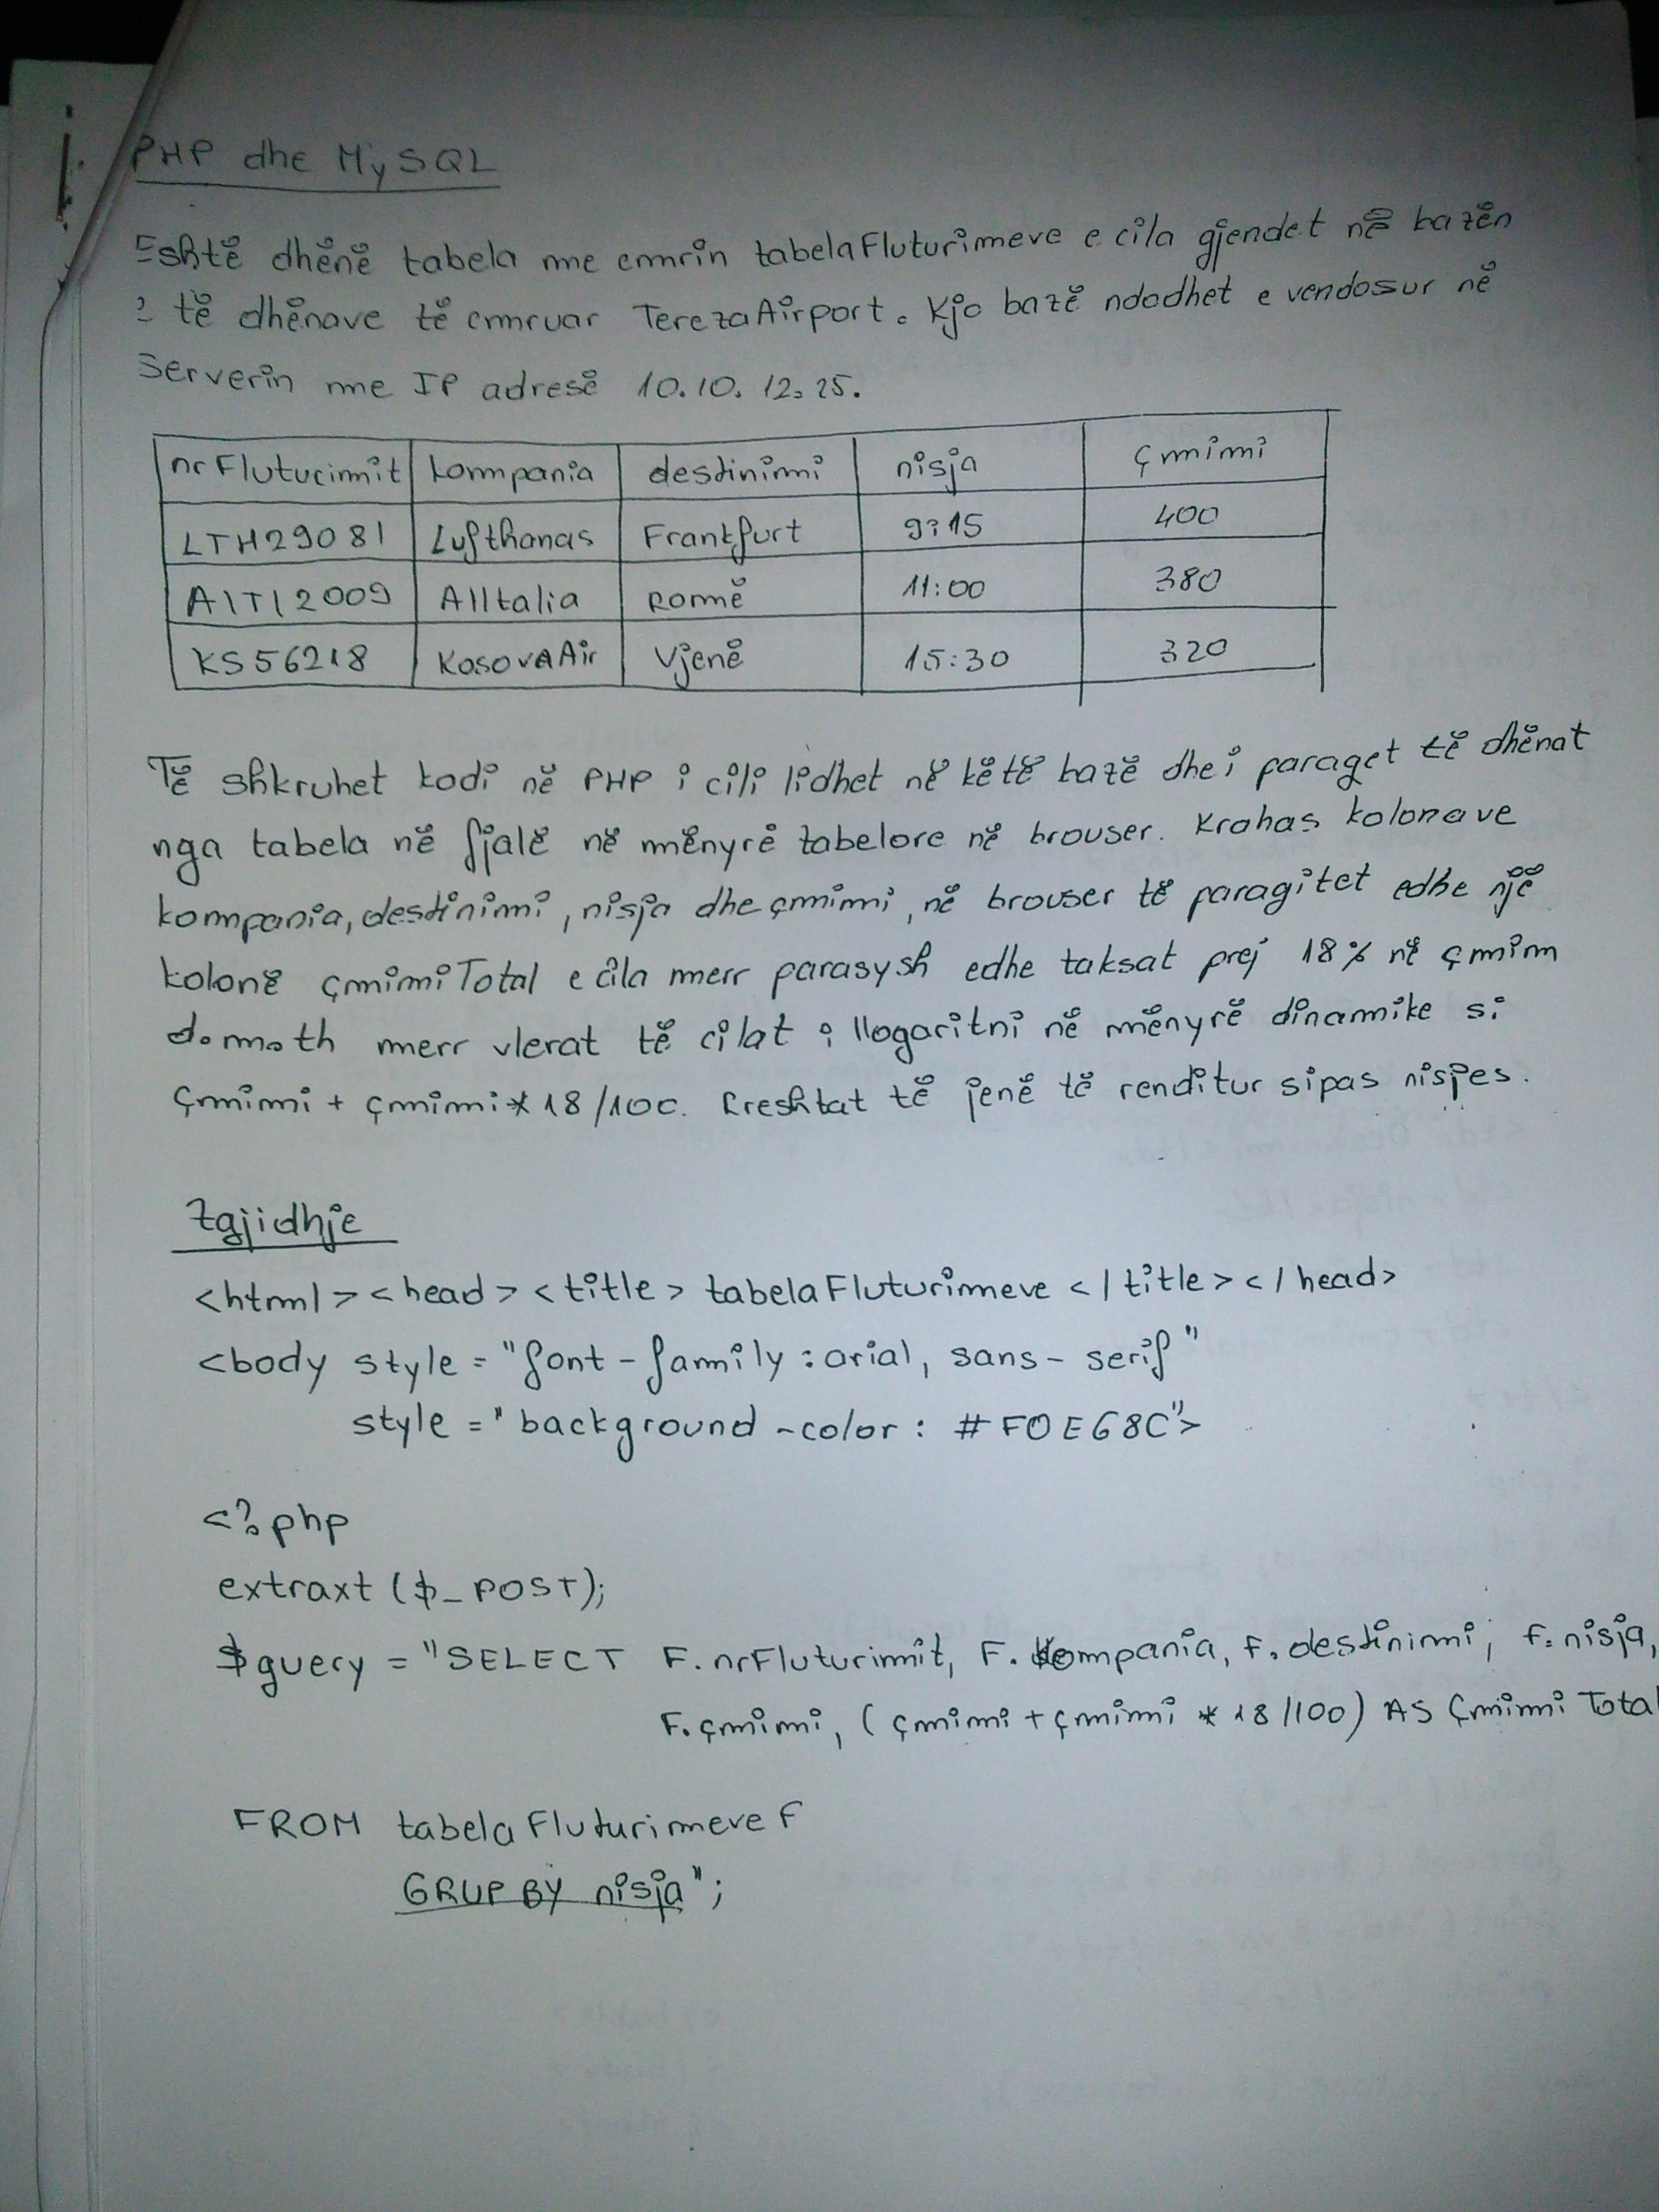 PHP dhe MySQL
Eshtë dhënë tabela me emrin tabelaFluturimeve e cila gjendet në bazën
e të dhënave të emruar TerezaAirport. Kjo bazë ndodhet e vendosur në
Serverin me IP adresë 10.10.12.25.
nrFluturimit kompania destinimi nisja çmimi
LTH29081 Lufthanas Frankfurt 9:15 400
AITI2009 AlItalia Romë 11:00 380
KS56218 KosovaAir Vjenë 15:30 320
Të shkruhet kodi në PHP i cili lidhet në këtë bazë dhe i paraqet të dhënat
nga tabela në fjalë në mënyrë tabelore në brouser. Krahas kolonave
kompania, destinimi, nisja dhe çmimi, në brouser të paragitet edhe një
kolonë çmimiTotal e cila merr parasysh edhe taksat prej 18% në çmim
d.m.th merr vlerat të cilat i llogaritni në mënyrë dinamike si
Çmimi + çmimi * 18/100. Rreshtat të jenë të renditur sipas nisjes.
Zgjidhje
<html><head><title> tabelaFluturimeve </title></head>
<body style = "font-family: arial, sans-serif"
style = "background-color: #F0E68C">
<?php
extraxt ($_POST);
$query = "SELECT F.nrFluturimit, F.kompania, F.destinimi, F.nisja,
F.çmimi, (çmimi + çmimi * 18/100) AS Çmimi Total
FROM tabelaFluturimeve F
GRUP BY nisja";